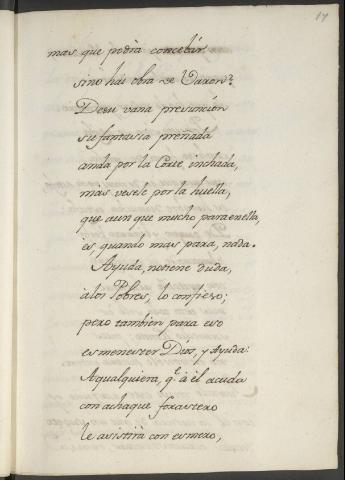 17
mas que podrà concebir
sino hai obra de Varon?
De su vana presuncion
su fantasia preñada
anda por la Corte inchada,
mas vesele por la huella,
que aun que mucho para en ella,
es, quando mas para, nada.
Ayuda, no tiene duda,
à los Pobres, lo confieso;
pero tambien para eso
es menester Dios, y Ayuda:
A qualquiera, q.e à èl acuda
con achaque forastero
le asistirà con esmero,